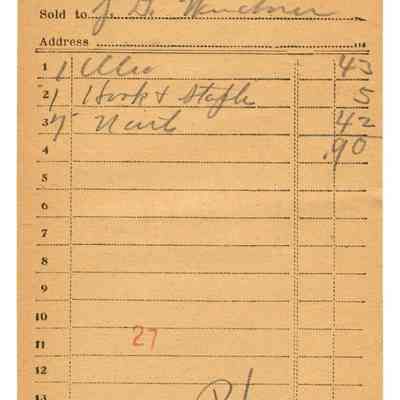 Sold to J. G.
Address
1 1 43
2 1 Hook & Staple 5
3 7 42
4 .90
5
6
7
8
9
10
11 27
12
13 Pd